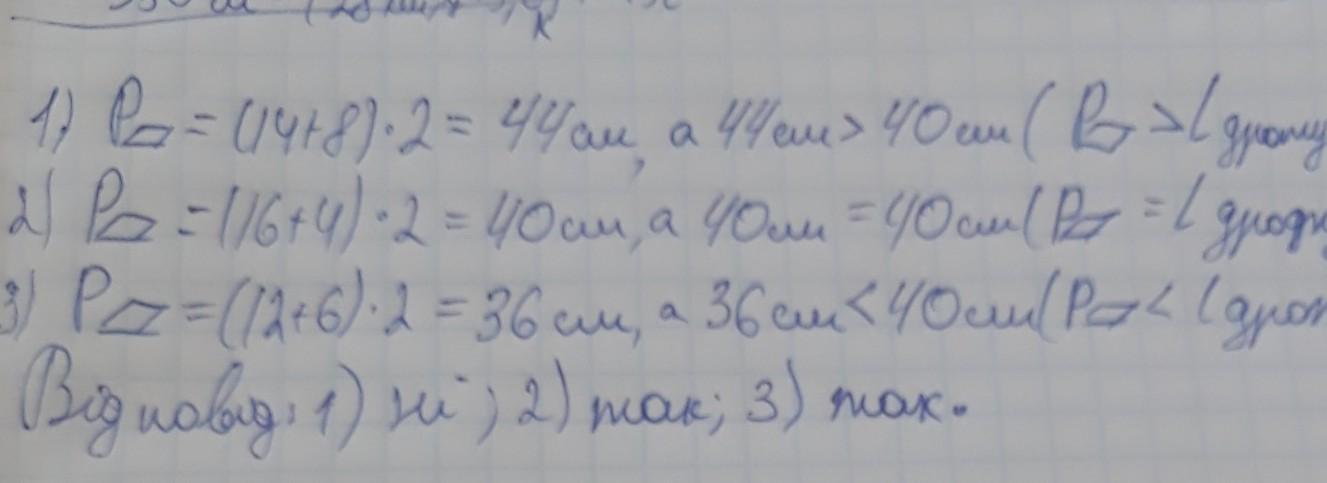 1) P▱ = (14+8)·2 = 44 см, а 44 см > 40 см ( P▱ > l дроту
2) P▱ = (16+4)·2 = 40 см, а 40 см = 40 см ( P▱ = l
3) P▱ = (12+6)·2 = 36 см, а 36 см < 40 см ( P▱ < l дрот
Відповід: 1) ні ; 2) так; 3) так.